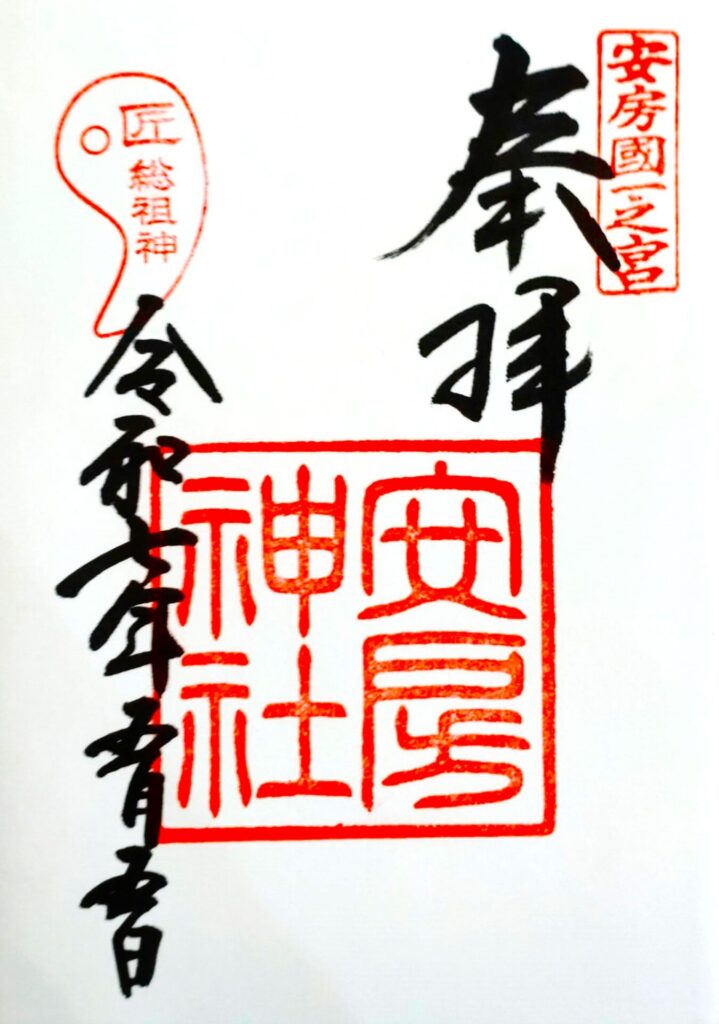 安房國一之宮
奉拝
安房
神社
匠
総祖神
令和七年五月五日